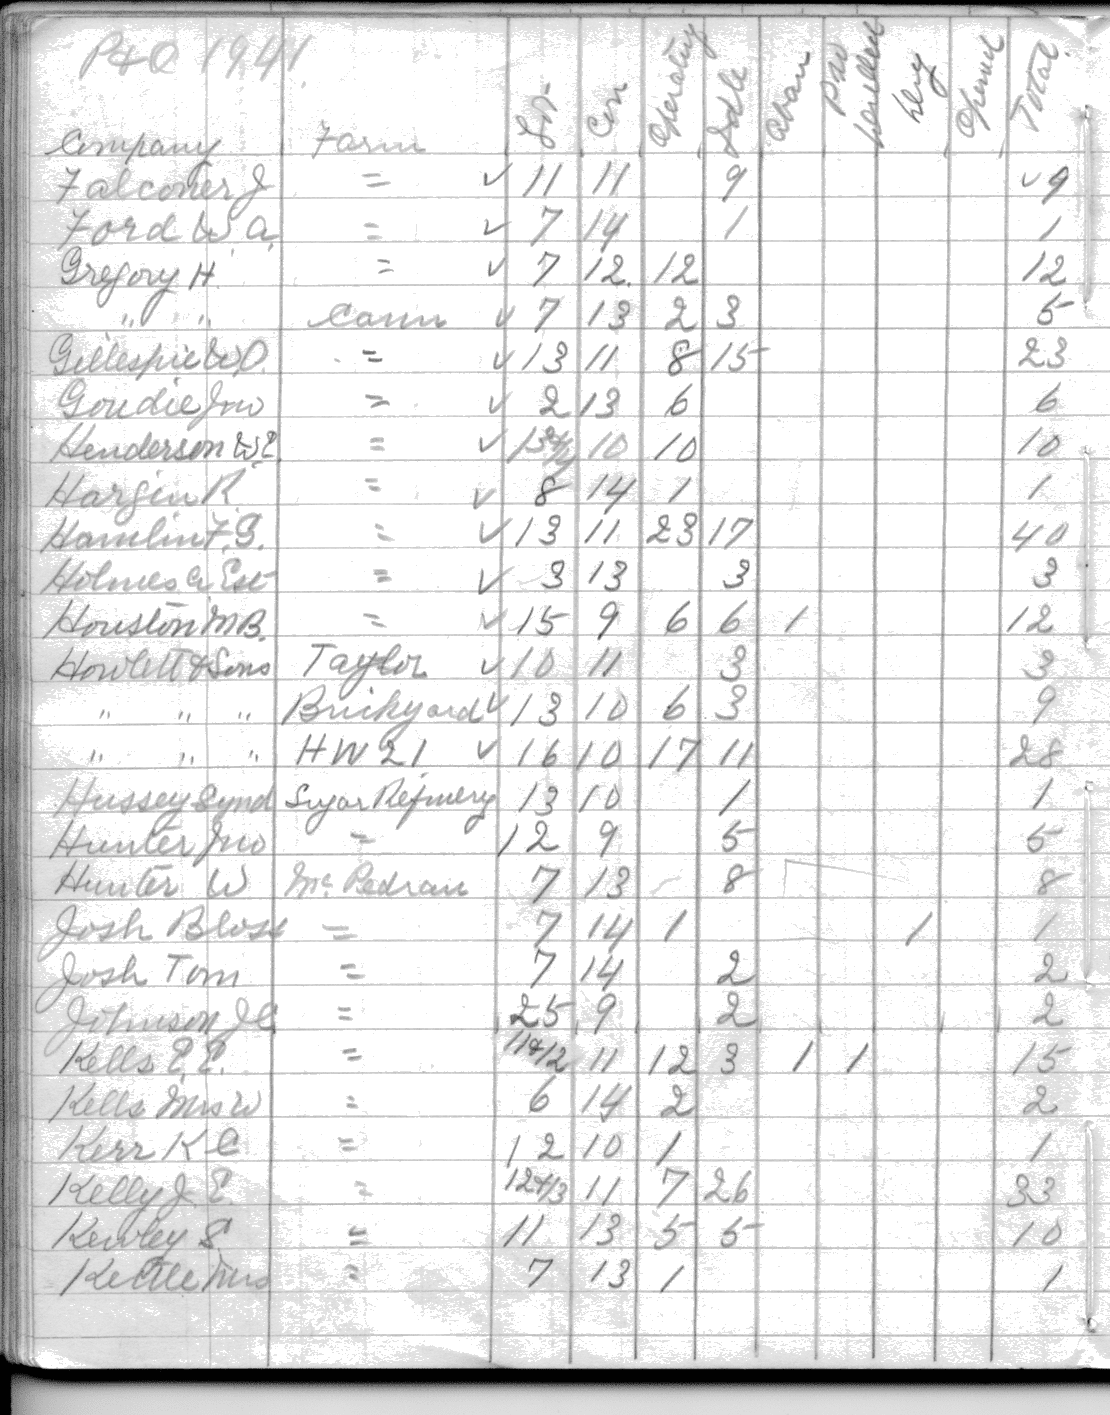 P&O 1941.
Company Farm Lot Con Operating Idle Aban Levy Opened Total.
Falconer J = ✓ 11 11 9 ✓9
Ford W A. = ✓ 7 14 1 1
Gregory H = ✓ 7 12. 12 12
" " Cann ✓ 7 13 2 3 5
Gillespie W.O. = ✓ 13 11 8 15 23
Goudie Jno = ✓ 2 13 6 6
Henderson W.E. = ✓ 10 10 10
Hargin R. = ✓ 8 14 1 1
Hamlin F.G. = ✓ 13 11 23 17 40
Holmes A Est = ✓ 3 13 3 3
Houston M.B. = ✓ 15 9 6 6 1 12
Howlett & Sons Taylor ✓ 10 11 3 3
" " " Brickyard ✓ 13 10 6 3 9
" " " HW 21 ✓ 16 10 17 11 28
Hussey Synd Sugar Refinery 13 10 1 1
Hunter Jno = 12 9 5 5
Hunter W Mc Pedran 7 13 8 8
Josh Bloss = 7 14 1 1 1
Josh Tom = 7 14 2 2
Johnson J C = 25 9 2 2
Kells E.E. = 11&12 11 12 3 1 1 15
Kells Mrs W = 6 14 2 2
Kerr K C = 12 10 1 1
Kelly J. E = 12&13 11 7 26 33
Kewley S = 11 13 5 5 10
Kettle Mrs = 7 13 1 1